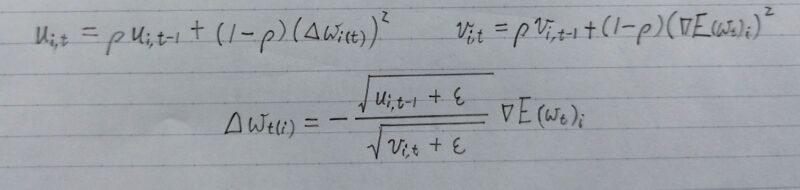 u_{i,t} = ρ u_{i,t-1} + (1-ρ) (Δw_{i(t)})^2 v_{i,t} = ρ v_{i,t-1} + (1-ρ) (∇E(w_t)_i)^2
Δw_{t(i)} = - \frac{\sqrt{u_{i,t-1} + ε}}{\sqrt{v_{i,t} + ε}} ∇E(w_t)_i